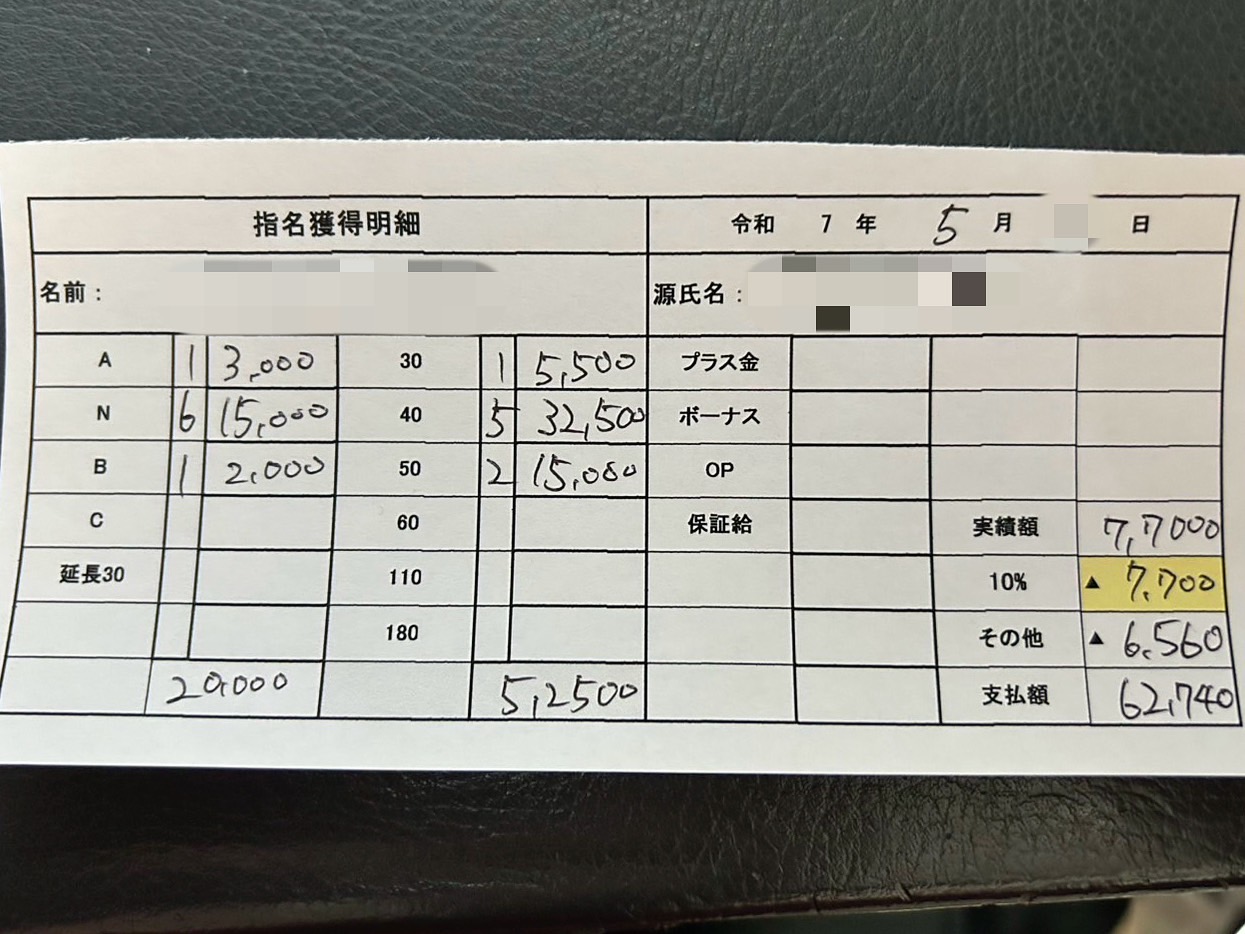 指名獲得明細 令和 7 年 5 月 日
名前： 源氏名：
A 1 3,000 30 1 5,500 プラス金
N 6 15,000 40 5 32,500 ボーナス
B 1 2,000 50 2 15,000 OP
C 60 保証給 実績額 7,7000
延長30 110 10% ▲ 7,700
180 その他 ▲ 6,560
20,000 5,2500 支払額 62,740